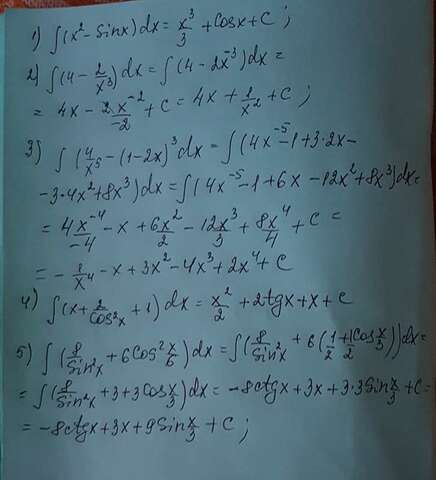 1) ∫(x² - sinx)dx = x³/3 + cosx + c ;
2) ∫(4 - 2/x³)dx = ∫(4 - 2x⁻³)dx =
= 4x - 2x⁻²/-2 + c = 4x + 1/x² + c ;
3) ∫(4/x⁵ - (1-2x)³dx = ∫(4x⁻⁵ - 1 + 3·2x -
- 3·4x² + 8x³)dx = ∫(4x⁻⁵ - 1 + 6x - 12x² + 8x³)dx =
= 4x⁻⁴/-4 - x + 6x²/2 - 12x³/3 + 8x⁴/4 + c =
= - 1/x⁴ - x + 3x² - 4x³ + 2x⁴ + c
4) ∫(x + 2/cos²x + 1)dx = x²/2 + 2tgx + x + c
5) ∫(8/sin²x + 6cos² x/6)dx = ∫(8/sin²x + 6(1/2 + 1/2 cos x/3))dx =
= ∫(8/sin²x + 3 + 3cos x/3)dx = -8ctgx + 3x + 3·3sin x/3 + c =
= -8ctgx + 3x + 9sin x/3 + c ;